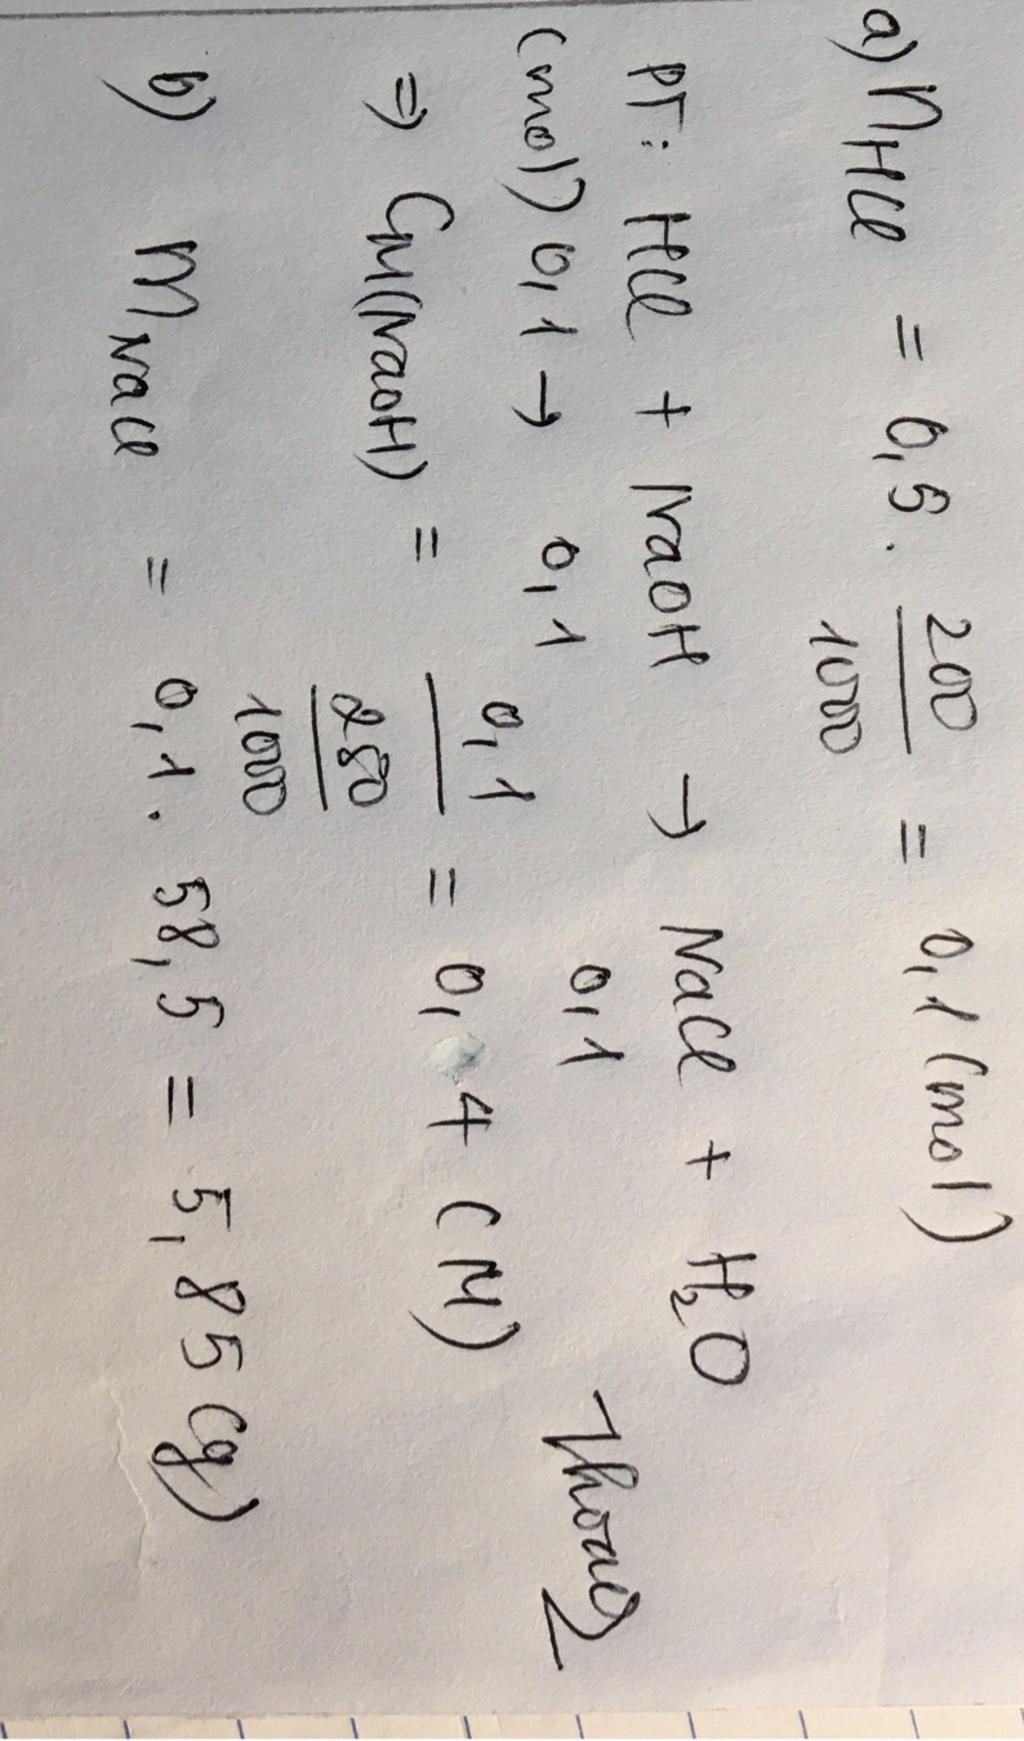 a) nHCl = 0,5 . 200/1000 = 0,1 (mol)
PT: HCl + NaOH → NaCl + H₂O
(mol) 0,1 → 0,1 0,1
⇒ CM(NaOH) = 0,1 / (250/1000) = 0,4 (M)
b) mNaCl = 0,1 . 58,5 = 5,85 (g)